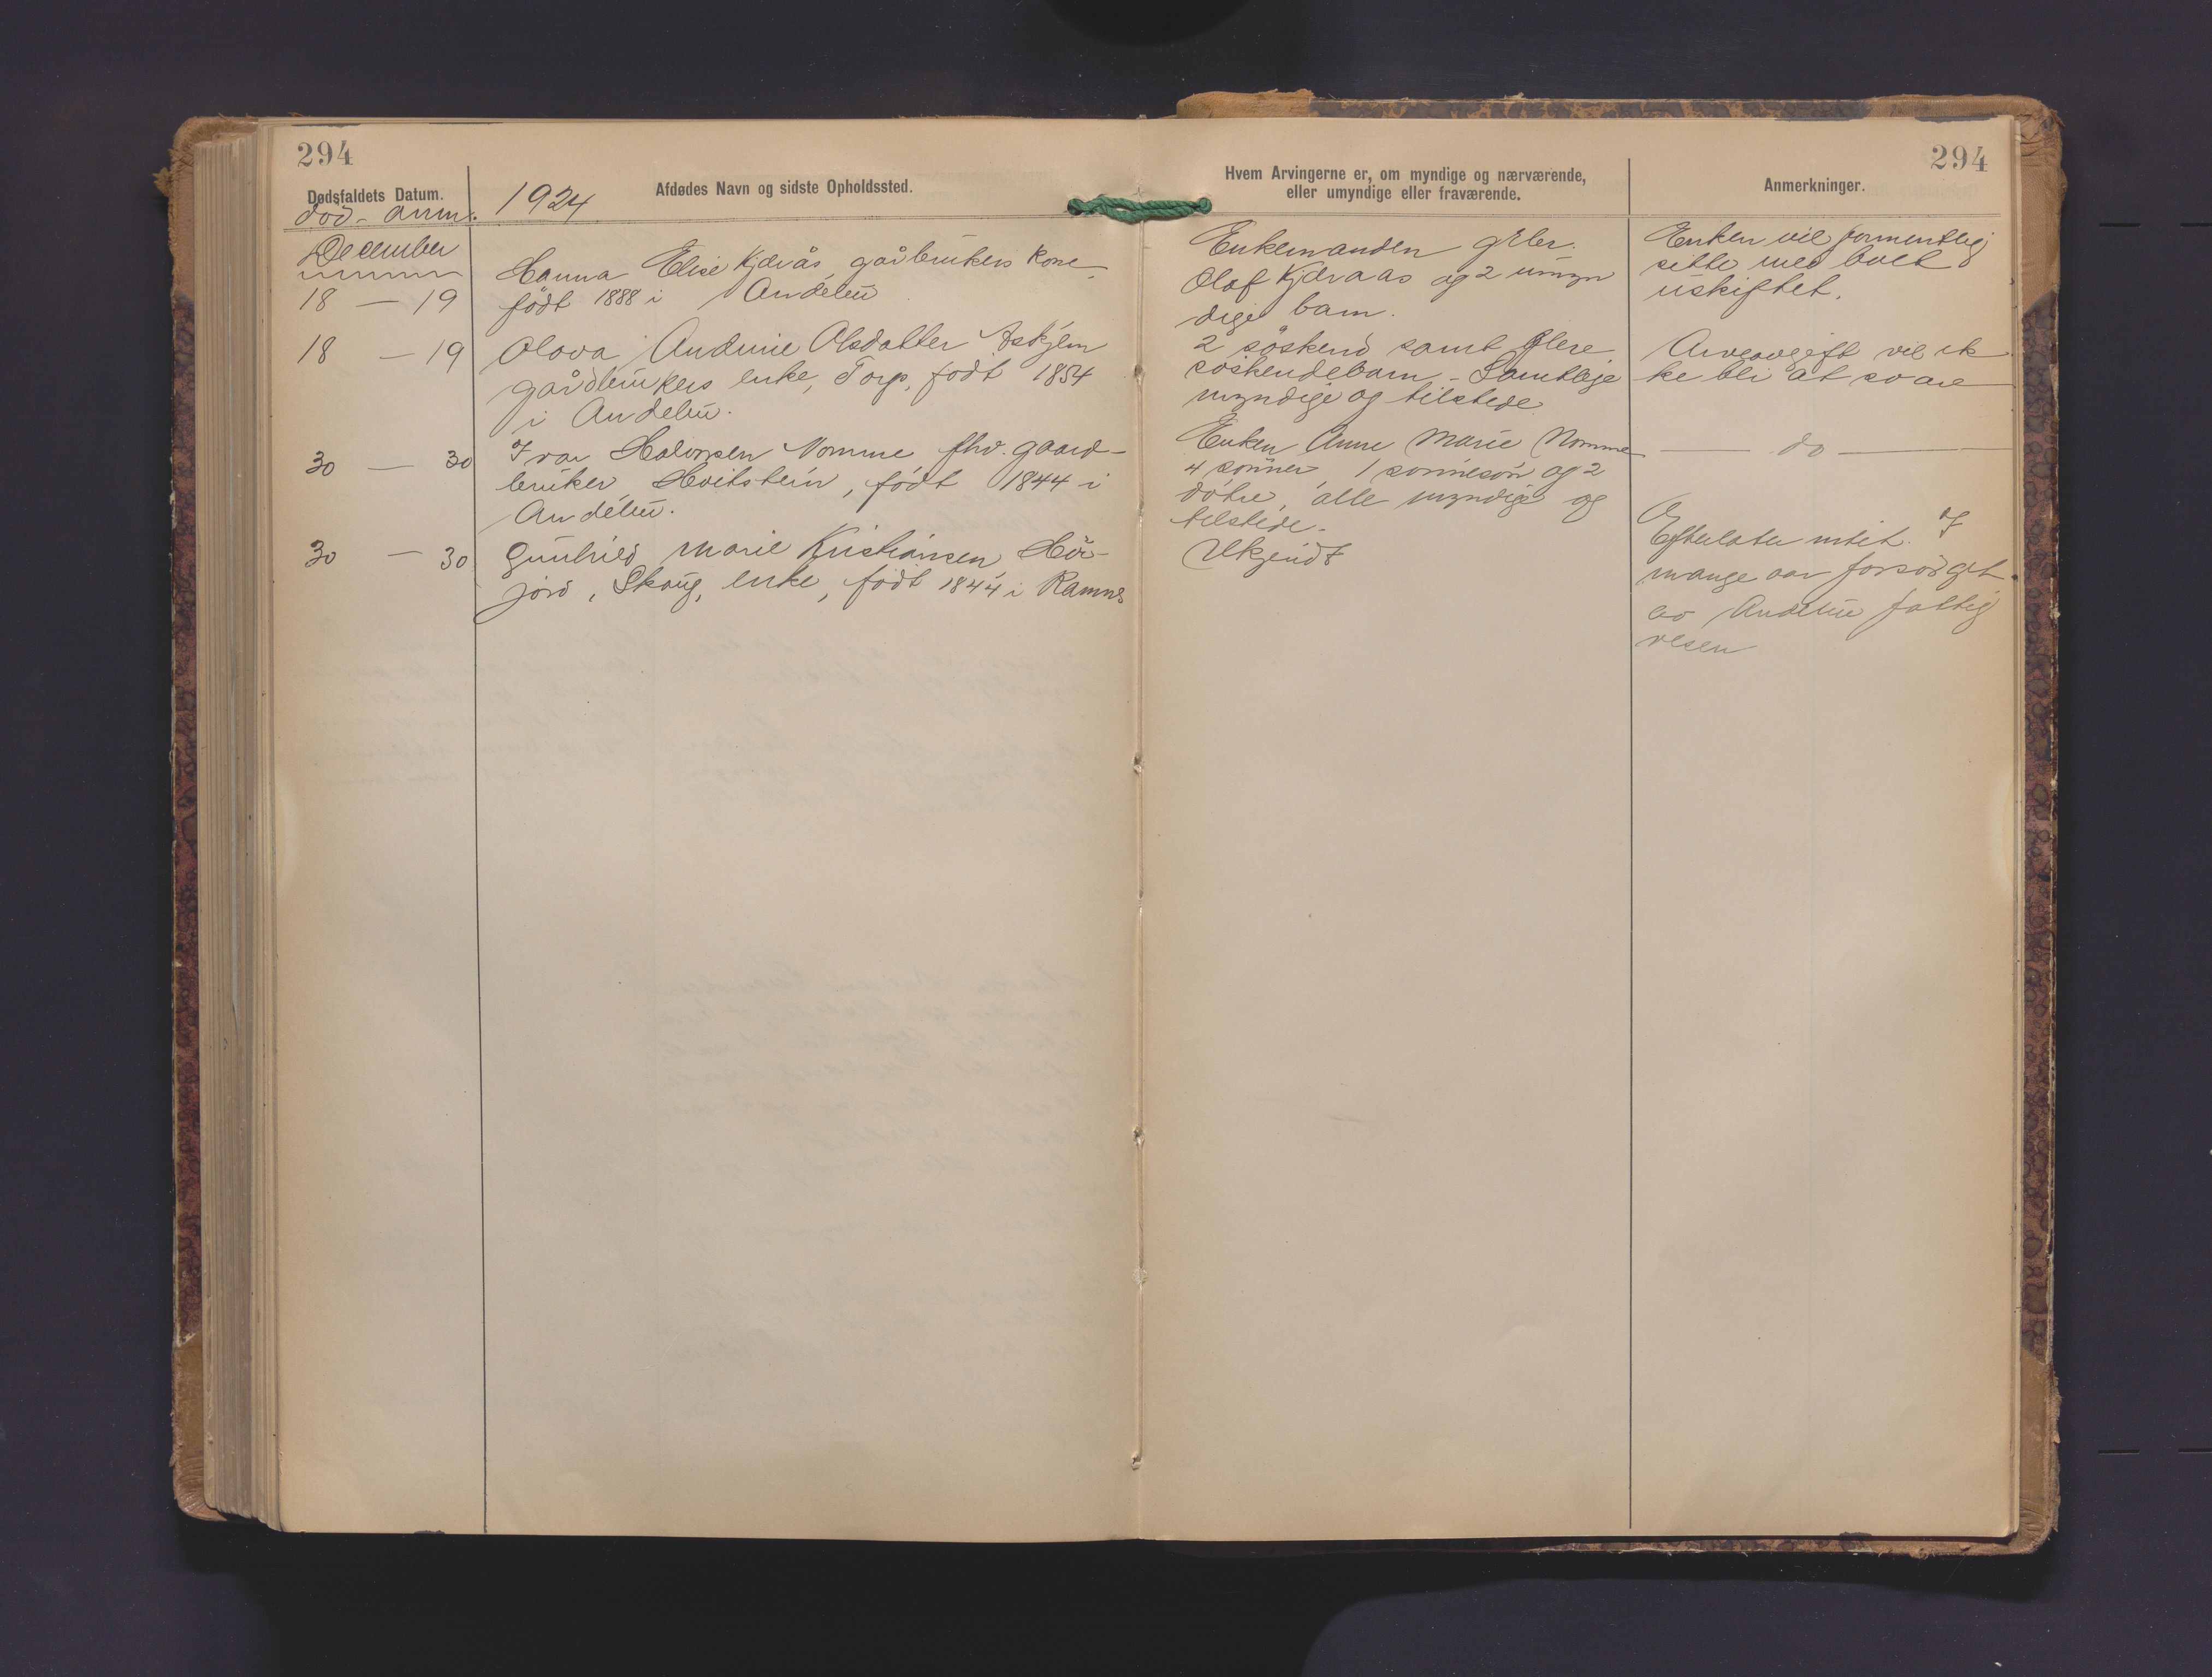 294
294
Dødsfaldets Datum.
død - anm.
1924
Afdødes Navn og sidste Opholdssted.
Hvem Arvingerne er, om myndige og nærværende,
eller umyndige eller fraværende.
Anmerkninger.
December
18 — 19
Hanna Elise Kjærås, gårbrukers kone,
født 1888 i Andebu
Enkemanden gbr.
Olaf Kjæraas og 2 umyn
dige barn.
Enken vil formentlig
sitte med boet
uskiftet.
18 — 19
Olava Andrine Olsdatter Askjem
gårdbrukers enke, Torp, født 1854
i Andebu.
2 søskend samt flere
søskendebarn - Samtlige
myndige og tilstede
Arveavgift vil ik
ke bli at svare
30 — 30
Ivar Halvorsen Nomme fhv. gaard-
bruker Hvitstein, født 1844 i
Andebu.
Enken Anne Marie Nomme
4 sønner 1 sønnesøn og 2
døtre, alle myndige og
tilstede.
— do —
30 — 30
Gunhild Marie Kristiansen, Hør-
jord, Skaug, enke, født 1844 i Ramnes
Ukjendt
Efterlater intet. I
mange aar forsørget
av Andebu fattig
vesen